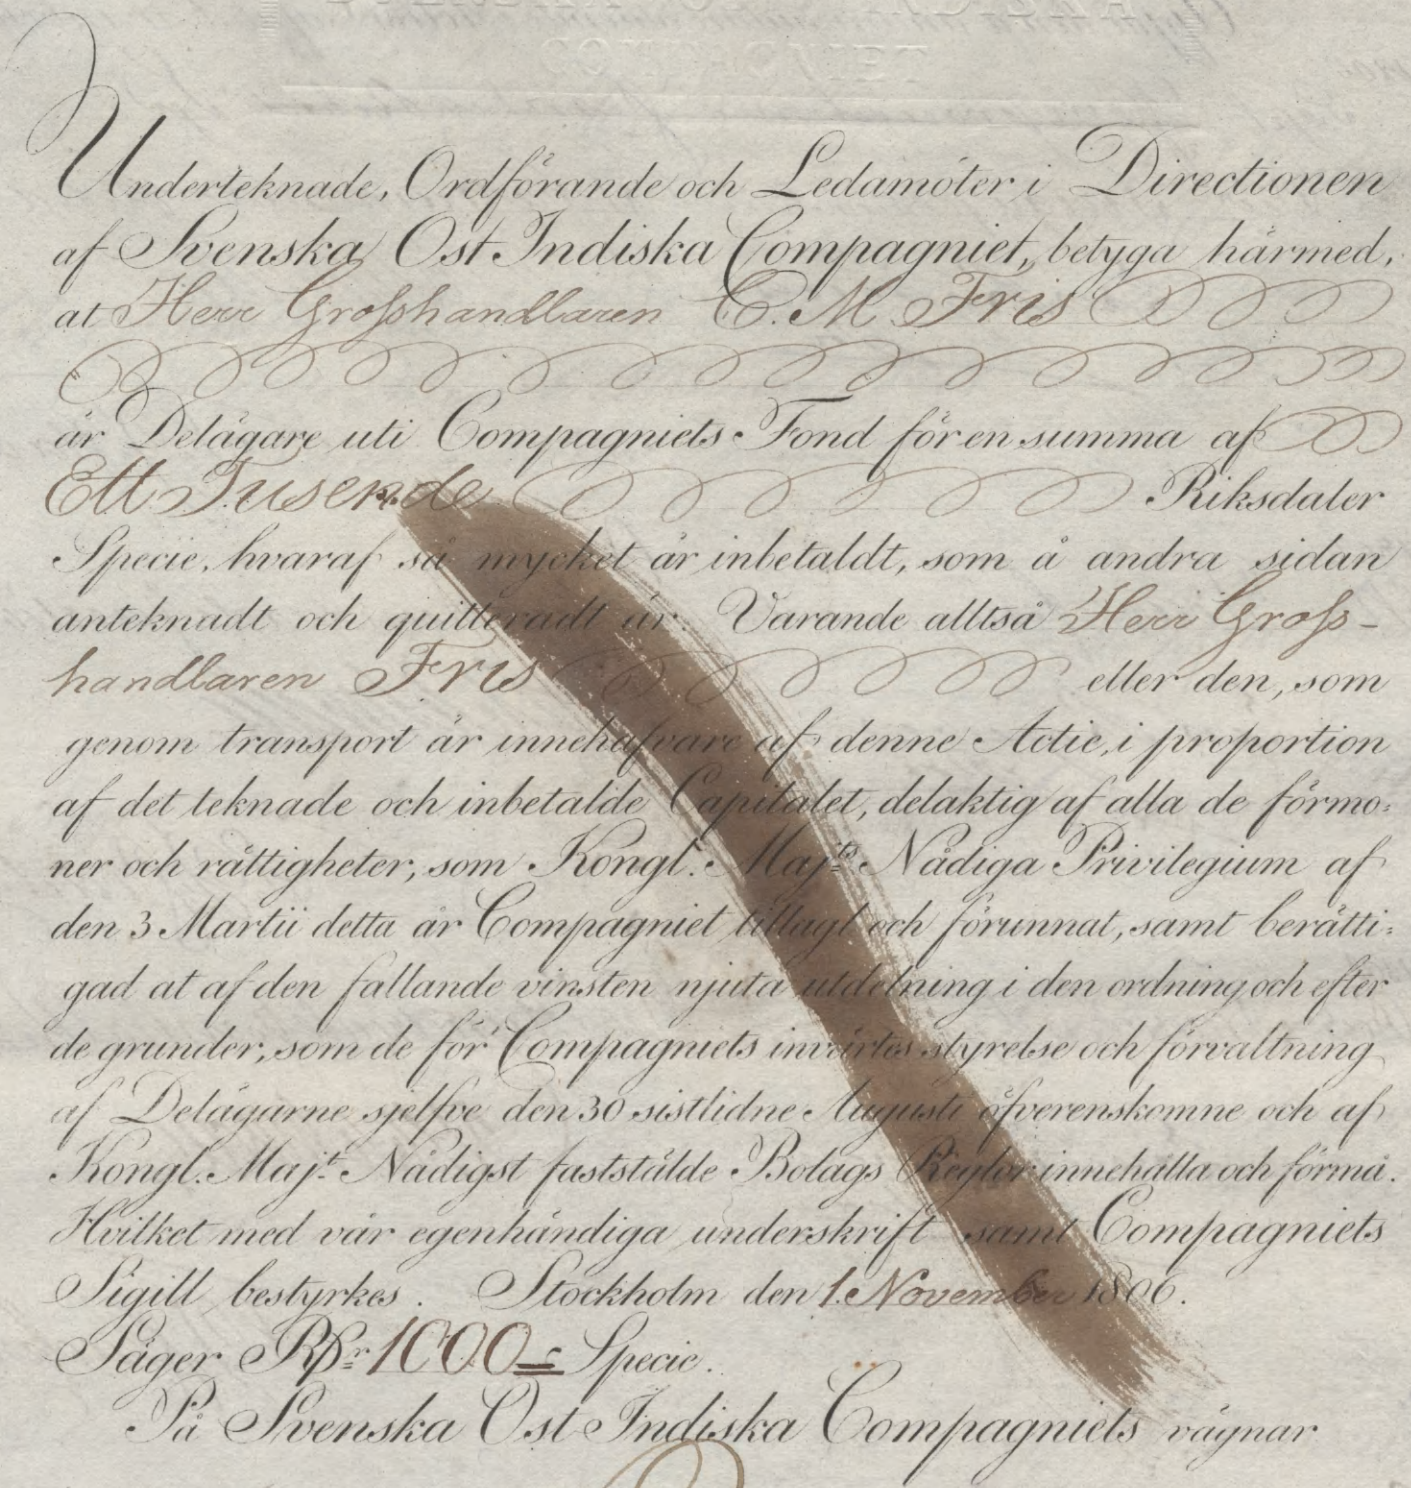 COMPAGNIET
Underteknade, Ordförande och Ledamöter i Directionen
af Svenska Ost Indiska Compagniet, betyga härmed,
at Herr Grosshandlaren C. M. Fris
är Delägare uti Compagniets Fond för en summa af
Ett Tusende Riksdaler
Specie, hvaraf så mycket är inbetaldt, som å andra sidan
anteknadt och quitteradt är. Varande alltså Herr Gross-
handlaren Fris eller den, som
genom transport är innehafvare af denne Actie, i proportion
af det teknade och inbetalde Capitalet, delaktig af alla de förmo-
ner och rättigheter, som Kongl. Maj:ts Nådiga Privilegium af
den 3 Martii detta år Compagniet tillagt och förunnat, samt berätti-
gad at af den fallande vinsten njuta utdelning i den ordning och efter
de grunder, som de för Compagniets invärtes styrelse och förvaltning
af Delägarne sjelfve den 30 sistlidne Augusti öfverenskomne och af
Kongl. Maj:t Nådigst faststälde Bolags Reglor innehålla och förmå.
Hvilket med vår egenhändiga underskrift samt Compagniets
Sigill bestyrkes. Stockholm den 1. November 1806.
Säger RDr 1000 Specie.
På Svenska Ost Indiska Compagniets vägnar